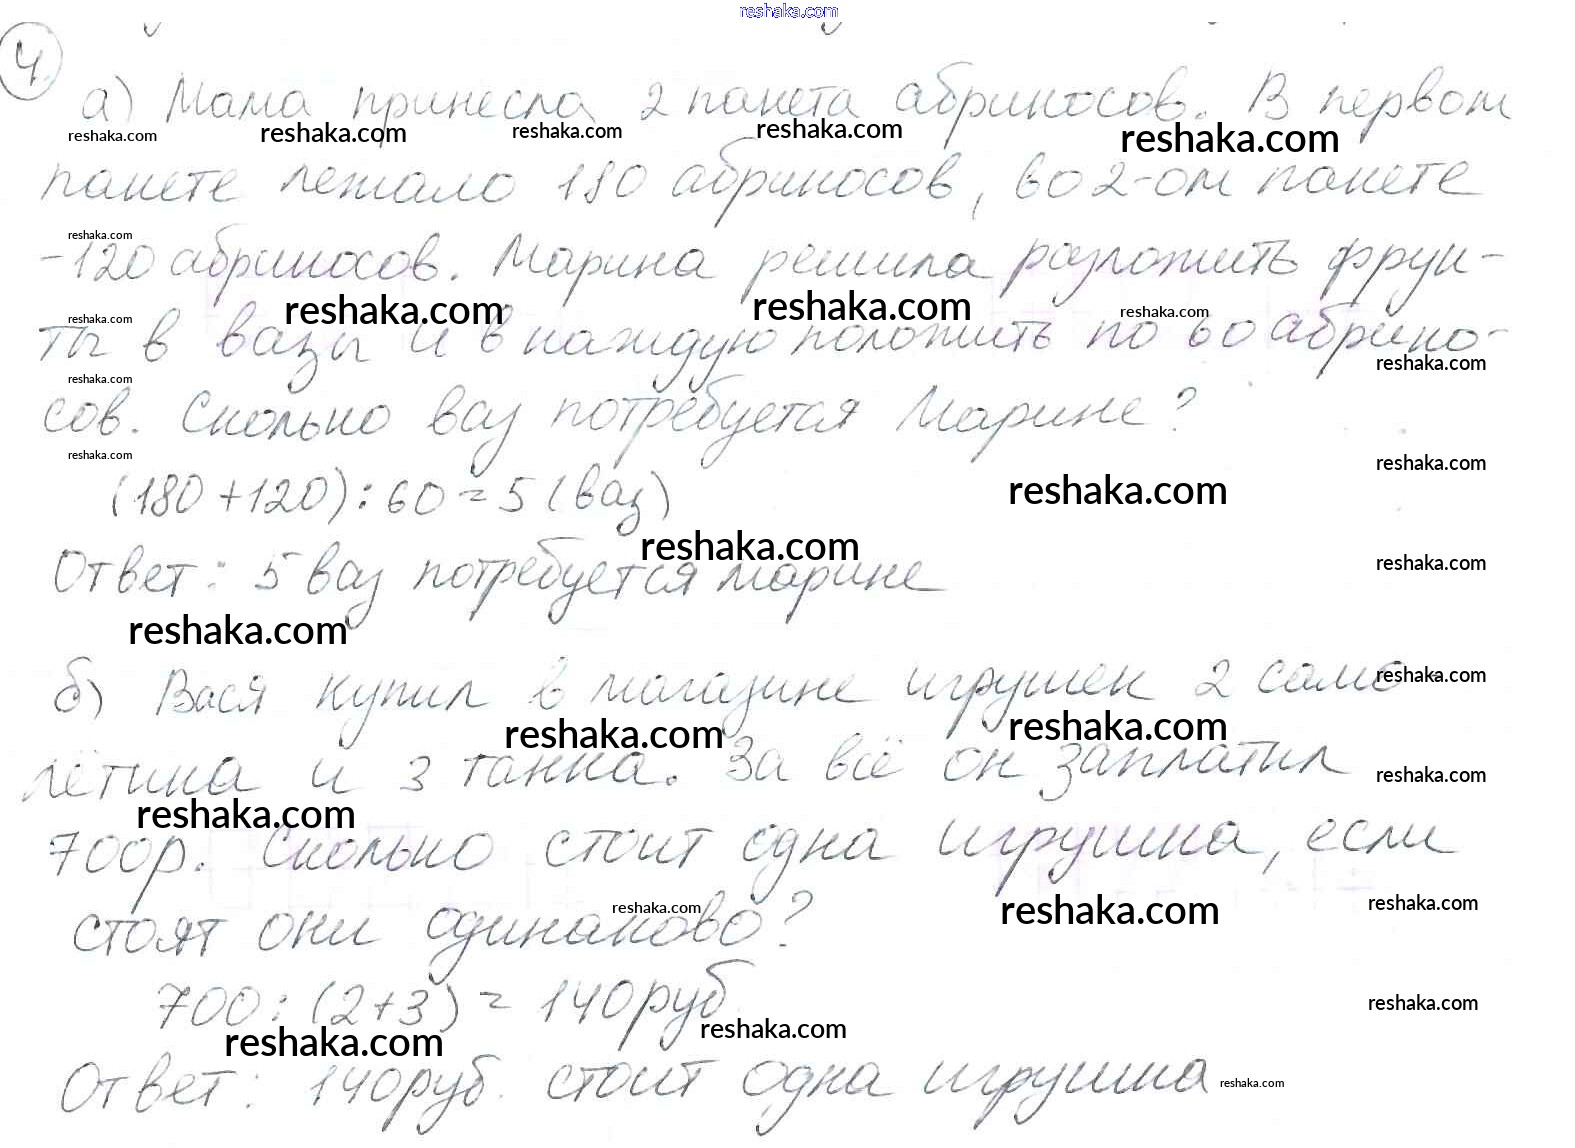 reshaka.com
4.
а) Мама принесла 2 пакета абрикосов. В первом
reshaka.com reshaka.com reshaka.com reshaka.com reshaka.com
пакете лежало 180 абрикосов, во 2-ом пакете
reshaka.com
-120 абрикосов. Марина решила разложить фрук-
reshaka.com reshaka.com reshaka.com reshaka.com
ты в вазы и в каждую положить по 60 абрико-
reshaka.com reshaka.com
сов. Сколько ваз потребуется Марине?
reshaka.com reshaka.com
(180+120):60=5 (ваз) reshaka.com
reshaka.com reshaka.com
Ответ: 5 ваз потребуется Марине
reshaka.com
б) Вася купил в магазине игрушек 2 само-
reshaka.com
reshaka.com reshaka.com
лётика и 3 танка. За всё он заплатил
reshaka.com reshaka.com
700р. Сколько стоит одна игрушка, если
reshaka.com reshaka.com reshaka.com
стоят они одинаково?
700:(2+3)=140руб.
reshaka.com
reshaka.com reshaka.com
Ответ: 140руб. стоит одна игрушка
reshaka.com